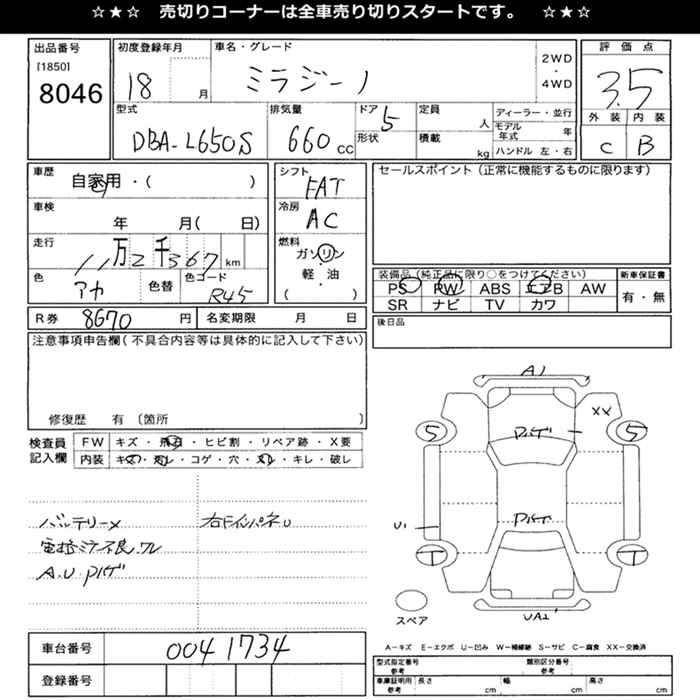 ☆★☆ 売切りコーナーは全車売り切りスタートです。 ☆★☆
出品番号
[1850]
8046
初度登録年月
18 月
車名・グレード
ミラジーノ
2WD
・
4WD
評価点
3.5
外装 内装
C B
型式
DBA-L650S
排気量
660 CC
ドア 5
形状
定員 人
積載 kg
ディーラー・並行
モデル年式 年
ハンドル 左・右
車歴
自家用・( )
車検
年 月( 日)
走行
11万2千367 km
色
アカ
色替
色コード
R45
シフト
FAT
冷房
AC
燃料
ガソリン
・
軽油
・
( )
セールスポイント(正常に機能するものに限ります)
装備品(純正品に限り○をつけてください)
PS PW ABS エアB AW
SR ナビ TV カワ
新車保証書
有・無
R券 8670 円 名変期限 月 日
後日品
注意事項申告欄(不具合内容等は具体的に記入して下さい)
修復歴 有 〔箇所 〕
検査員記入欄
FW キズ・飛石・ヒビ割・リペア跡・X要
内装 キズ・汚レ・コゲ・穴・スレ・キレ・破レ
バッテリーメ
右ドインパネU
電格ミラー不良.ワレ
A.U.Pハゲ
A1
XX
5 5
Pハゲ
Pハゲ
U1
T T
UA2
スペア
A-キズ E-エクボ U-凹み W-補修跡 S-サビ C-腐食 XX-交換済
車台番号 0041734
登録番号
型式指定番号 参考
類別区分番号 参考
車庫証明用 参考
長さ cm
幅 cm
高さ cm